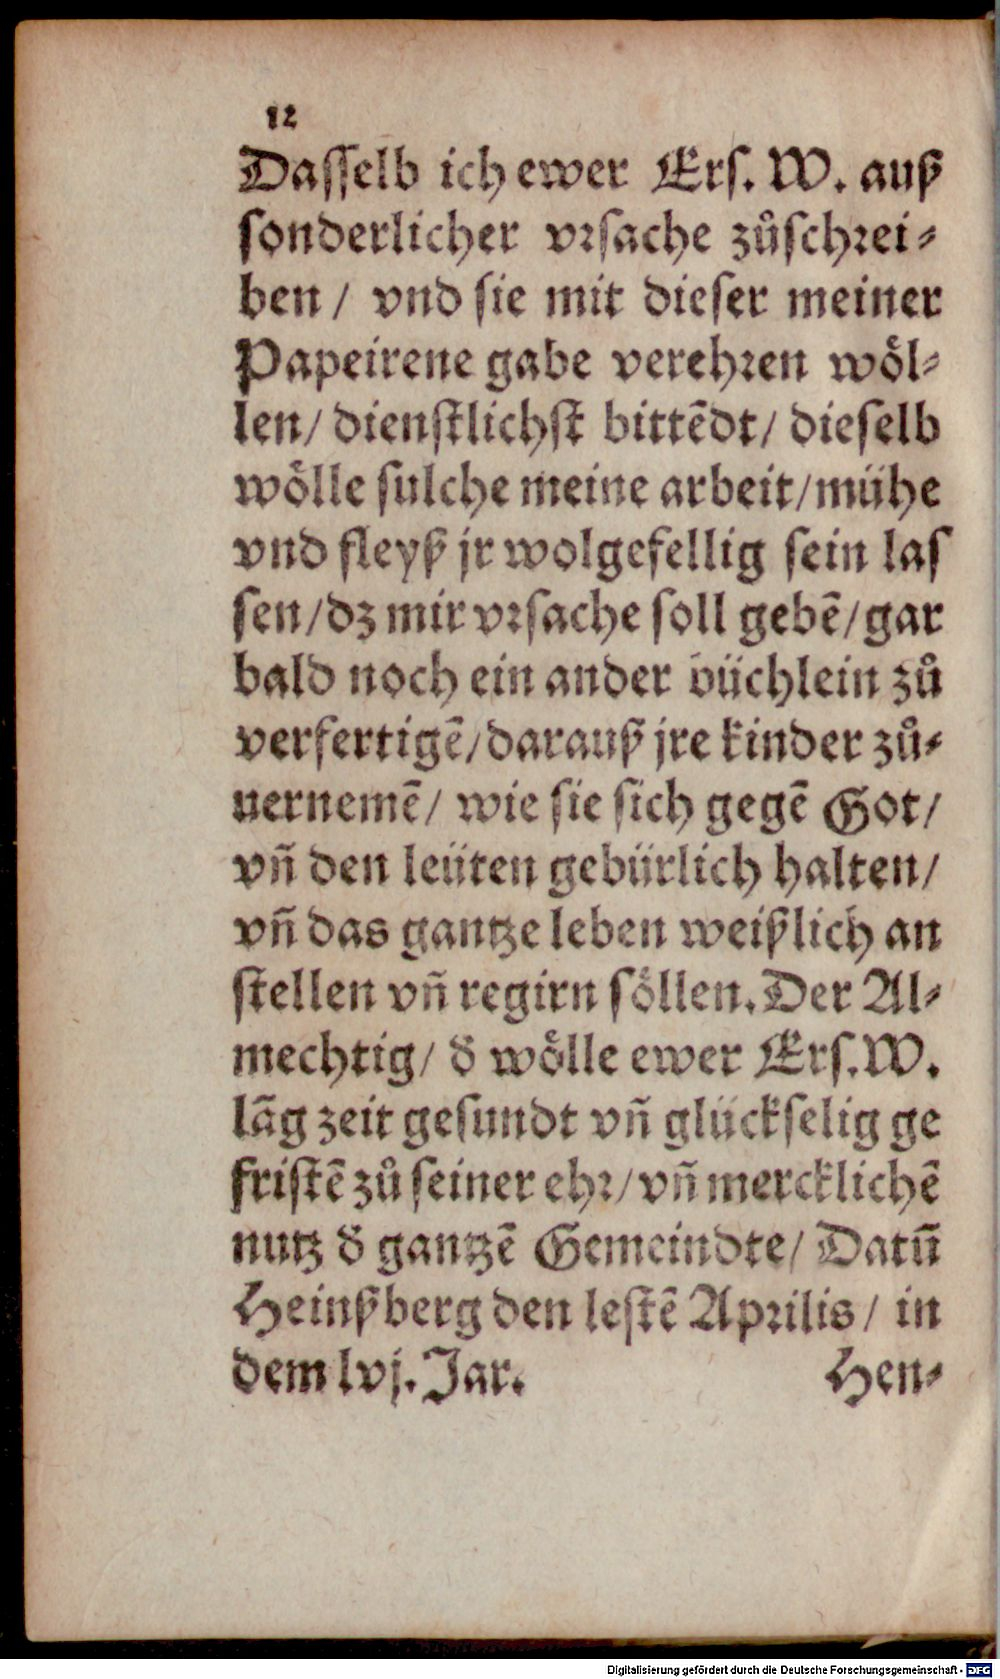 12
Dasſelb ich ewer Erſ. W. auß
ſonderlicher vrſache zůſchrei⸗
ben / vnd ſie mit dieſer meiner
Papeirene gabe verehren wöl⸗
len/ dienſtlichſt bittēdt/ dieſelb
wölle ſulche meine arbeit/mühe
vnd fleyß jr wolgefellig ſein laſ
ſen/dz mir vrſache ſoll gebē/gar
bald noch ein ander büchlein zů
verfertigē/darauß jre kinder zů⸗
uernemē/ wie ſie ſich gegē Got/
vñ den leüten gebürlich halten/
vñ das gantze leben weißlich an
ſtellen vñ regirn ſöllen. Der Al⸗
mechtig/ d̄ wölle ewer Erſ. W.
lāg zeit geſundt vñ glückſelig ge
friſtē zů ſeiner ehr/ vñ mercklichē
nutz d̄ gantzē Gemeindte/ Datū
Heinßberg den leſtē Aprilis/ in
dem lvj. Jar.
Hen⸗
Digitalisierung gefördert durch die Deutsche Forschungsgemeinschaft - DFG